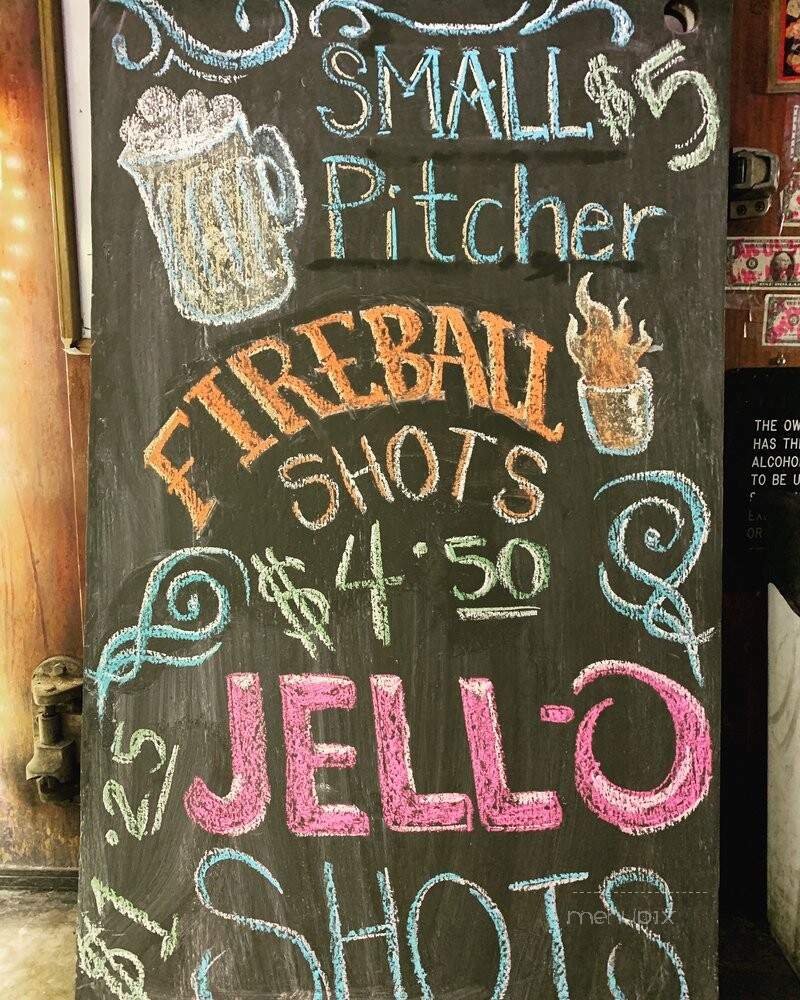 SMALL $5
Pitcher
FIREBALL
SHOTS
$4.50
JELL-O
$1.25
SHOTS
menupix
THE OW
HAS TH
ALCOHO
TO BE U
OR